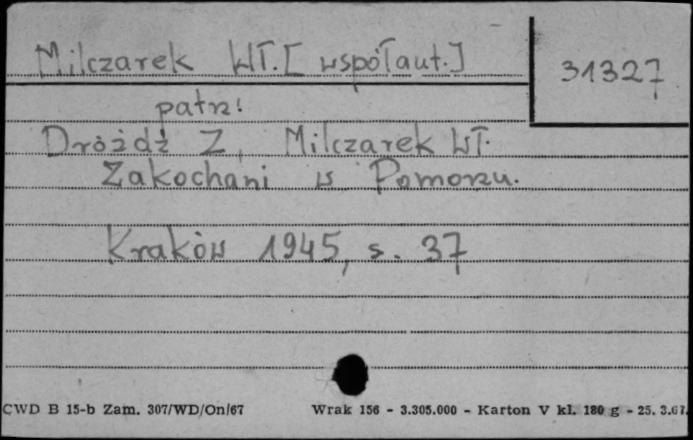 Milczarek Wł. [współaut.]
31327
patrz:
Dróżdż Z, Milczarek Wł.
Zakochani w Pomorzu.
Kraków 1945, s. 37
CWD B 15-b Zam. 307/WD/On/67 Wrak 156 - 3.305.000 - Karton V kl. 180 g - 25. 3.67.